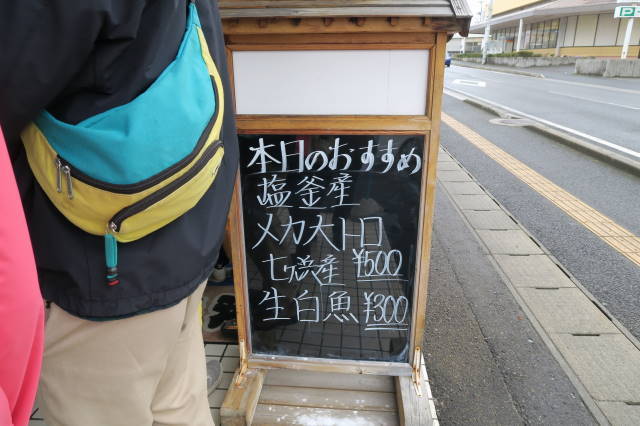 本日のおすすめ
塩釜産
メカ大トロ
七ヶ浜産 ¥500
生白魚 ¥300
P